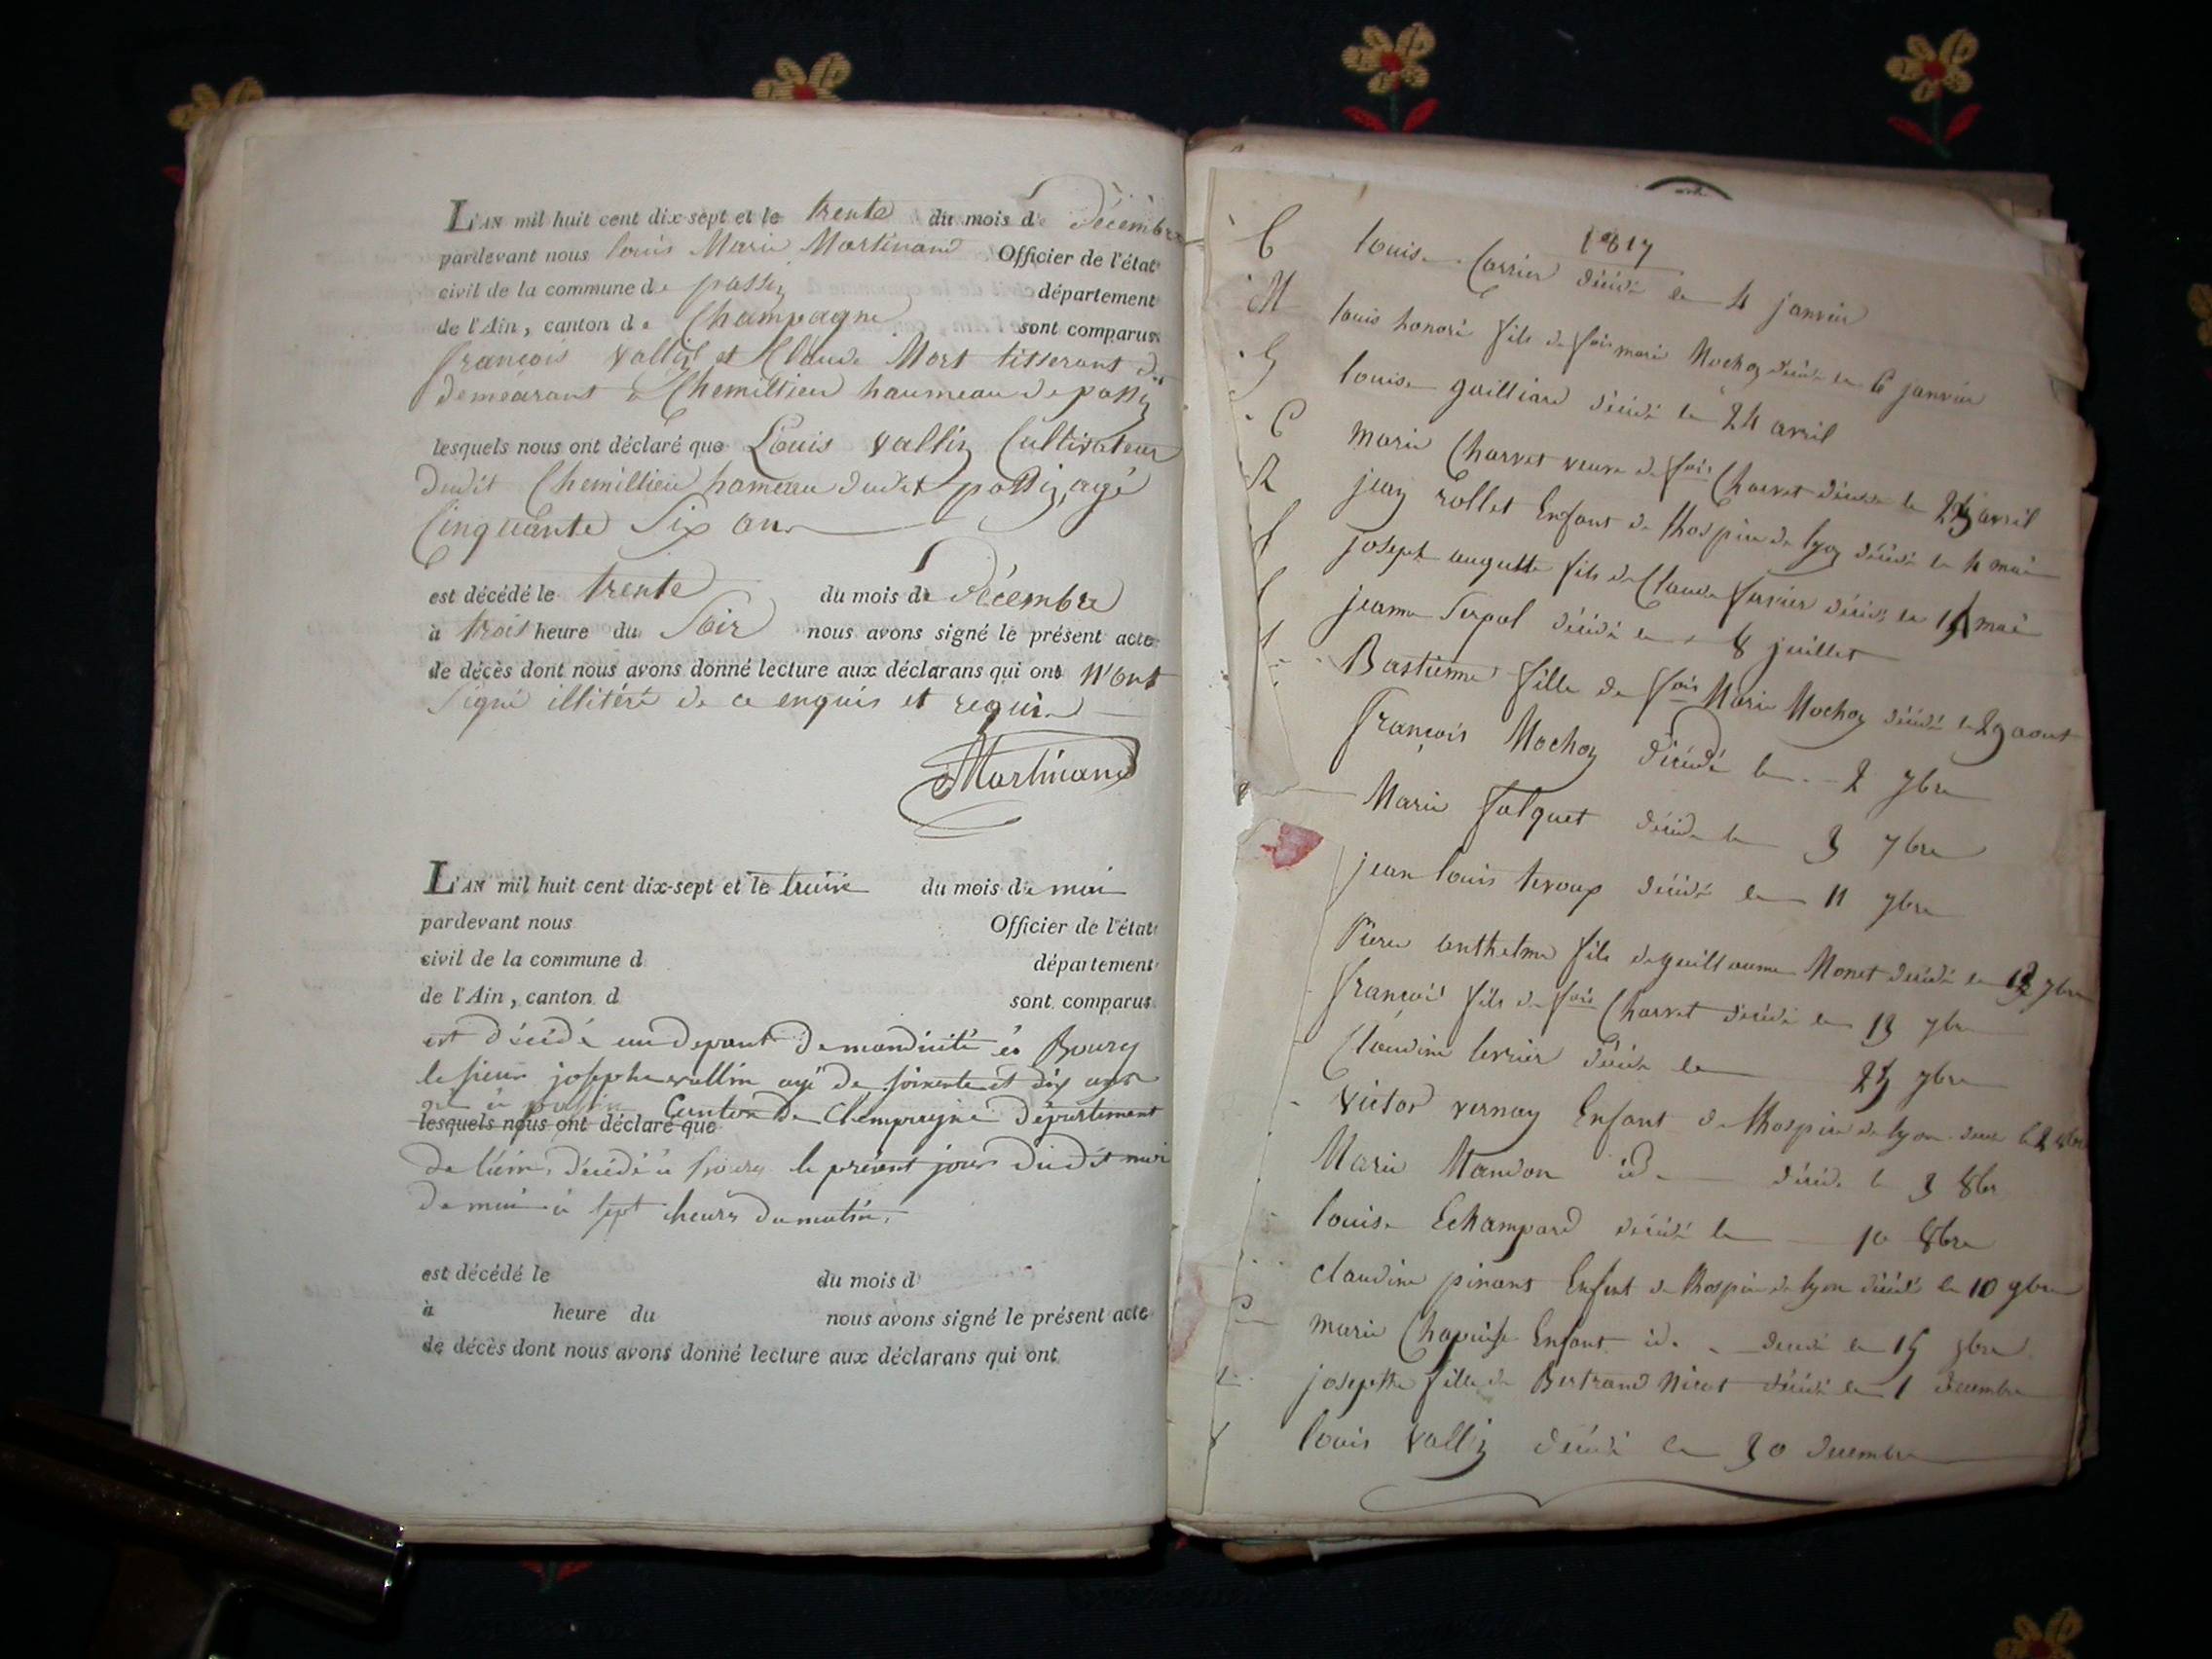 L'AN mil huit cent dix-sept et le trente du mois de décembre
pardevant nous louis Marie Martinand Officier de l'état
civil de la commune de passin département
de l'Ain, canton de Champagne sont comparus
françois vallin et Claude Mort tisserant
demeurant a Chemillieu haumeau de passin
lesquels nous ont déclaré que Louis vallin Cultivateur
dudit Chemillieu hameau dudit passin, agé
Cinquante Six ans
est décédé le trente du mois de décembre
à trois heure du Soir nous avons signé le présent acte
de décès dont nous avons donné lecture aux déclarans qui ont n'ont
Signé illitéré de ce enquis et requis
Martinand
L'AN mil huit cent dix-sept et le treize du mois de mai
pardevant nous Officier de l'état
civil de la commune d département
de l'Ain, canton d sont comparus
est décédé au depaut de mandicité à Bourg
le sieur josephe vallin agé de soixante et dix ans
né à passin Canton de Champagne Département
lesquels nous ont déclaré que
de l'ain, décédé à bourg le présent jour dudit moi
de mai à sept heurs du matin.
est décédé le du mois d
à heure du nous avons signé le présent acte
de décès dont nous avons donné lecture aux déclarans qui ont
1817
C louise Carrier décédé le 4 janvier
M louis honoré fils de fois marie Mochon décédé le 6 janvier
G louise guilliard décédé le 24 avril
C marie Charvet veuve de fois Charvet décédé le avril
R jean rollet Enfant de lhospice de lyon décédé le 4 mai
f joseph auguste fils de Claude décédé le mai
jeanne Serpol décédé le 8 juillet
Bastienne fille de fois Marie Mochon décédé le 29 aout
françois Mochon décédé le 2 7bre
Marie falquet décédé le 3 7bre
jean louis décédé le 11 7bre
Pierre anthelme fils de guillaume Monet décédé le 7bre
françois fils de fois Charvet décédé le 13 7bre
Claudine décédé le 7bre
victor vernay Enfant de lhospice de lyon
Marie Mandon id décédé le 3 8bre
louise Echampard décédé le 10 8bre
claudine pinant Enfant de lhospice de lyon décédé le 10 9bre
marie Enfant id. décédé le 15 9bre
josephte fille de Bertrand décédé le 1 decembre
louis vallin décédé le 30 decembre